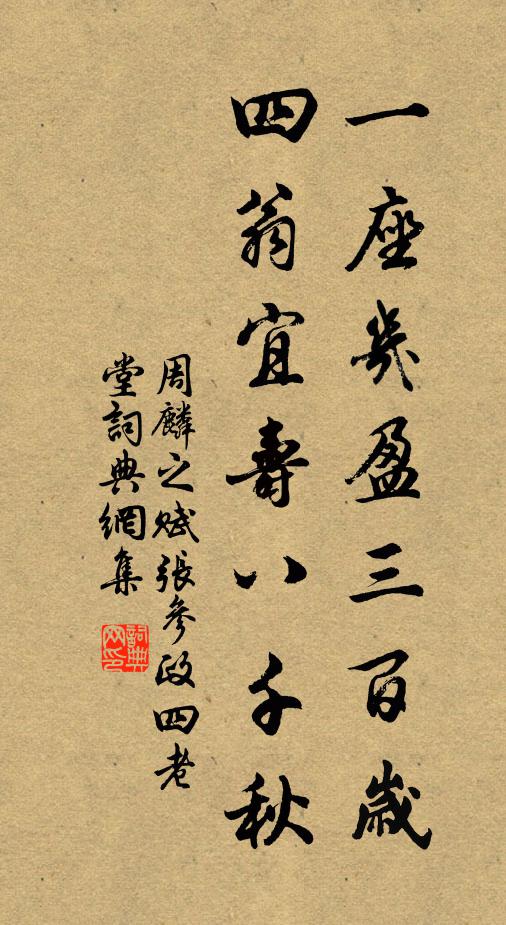 一座幾盈三百歲
四翁宜壽八千秋
周麟之賦張參政四老
堂詞典網集
詞典
网印